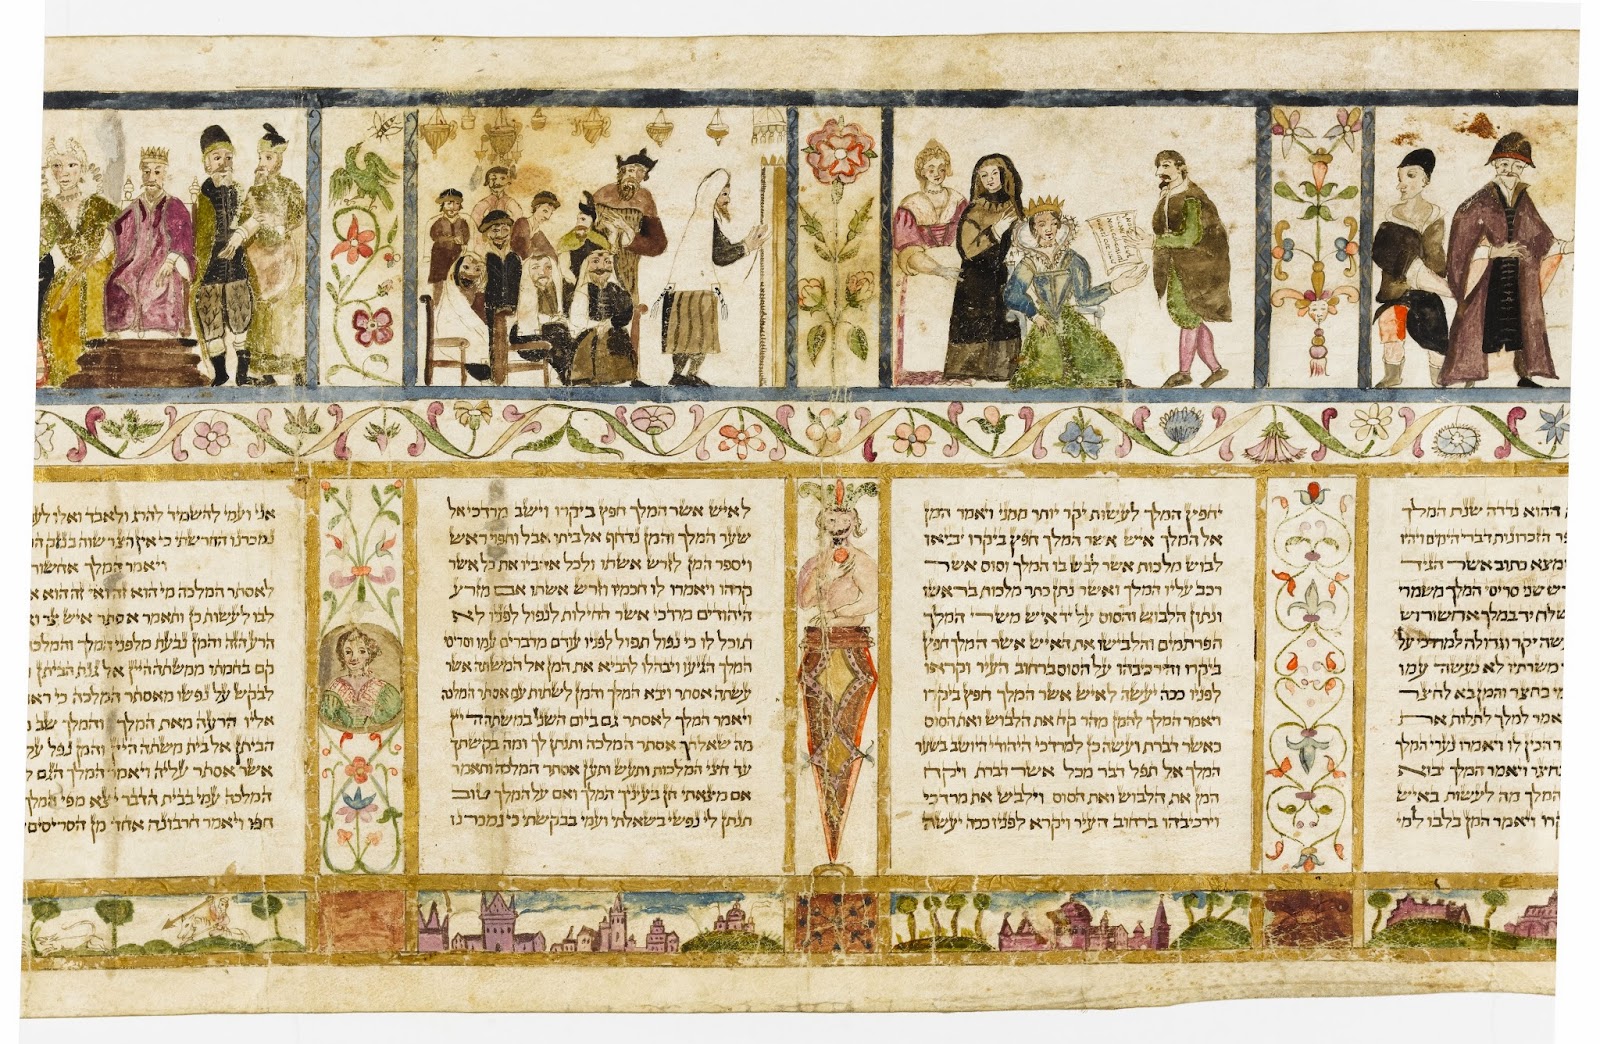 ההוא נדדה שנת המלך
הזכרונות דברי הימים ויהיו
נמצא כתוב אשר הגיד
שני סריסי המלך משמרי
יד במלך אחשורוש
יקר וגדולה למרדכי על
משרתיו לא נעשה עמו
בחצר והמן בא לחצר
למלך לתלות את
הכין לו ויאמרו נערי המלך
בחצר ויאמר המלך יבוא
המלך מה לעשות באיש
ויאמר המן בלבו למי
יחפיץ המלך לעשות יקר יותר ממני ויאמר המן
אל המלך איש אשר המלך חפץ ביקרו יביאו
לבוש מלכות אשר לבש בו המלך וסוס אשר
רכב עליו המלך ואשר נתן כתר מלכות בראשו
ונתון הלבוש והסוס על יד איש משרי המלך
הפרתמים והלבישו את האיש אשר המלך חפץ
ביקרו והרכיבהו על הסוס ברחוב העיר וקראו
לפניו ככה יעשה לאיש אשר המלך חפץ ביקרו
ויאמר המלך להמן מהר קח את הלבוש ואת הסוס
כאשר דברת ועשה כן למרדכי היהודי היושב בשער
המלך אל תפל דבר מכל אשר דברת ויקח
המן את הלבוש ואת הסוס וילבש את מרדכי
וירכיבהו ברחוב העיר ויקרא לפניו ככה יעשה
לאיש אשר המלך חפץ ביקרו וישב מרדכי אל
שער המלך והמן נדחף אל ביתו אבל וחפוי ראש
ויספר המן לזרש אשתו ולכל אהביו את כל אשר
קרהו ויאמרו לו חכמיו וזרש אשתו אם מזרע
היהודים מרדכי אשר החילות לנפול לפניו לא
תוכל לו כי נפול תפול לפניו עודם מדברים עמו וסריסי
המלך הגיעו ויבהלו להביא את המן אל המשתה אשר
עשתה אסתר ויבא המלך והמן לשתות עם אסתר המלכה
ויאמר המלך לאסתר גם ביום השני במשתה היין
מה שאלתך אסתר המלכה ותנתן לך ומה בקשתך
עד חצי המלכות ותעש ותען אסתר המלכה ותאמר
אם מצאתי חן בעיניך המלך ואם על המלך טוב
תנתן לי נפשי בשאלתי ועמי בבקשתי כי נמכרנו
אני ועמי להשמיד להרג ולאבד ואלו
נמכרנו החרשתי כי אין הצר שוה בנזק
ויאמר המלך אחשורוש
לאסתר המלכה מי הוא זה ואי זה הוא
לבו לעשות כן ותאמר אסתר איש צר
הרע הזה והמן נבעת מלפני המלך והמלכה
קם בחמתו ממשתה היין אל גנת הביתן
לבקש על נפשו מאסתר המלכה כי
אליו הרעה מאת המלך והמלך שב
הביתן אל בית משתה היין והמן נפל
אשר אסתר עליה ויאמר המלך הגם
המלכה עמי בבית הדבר יצא מפי המלך
חפו ויאמר חרבונה אחד מן הסריסים